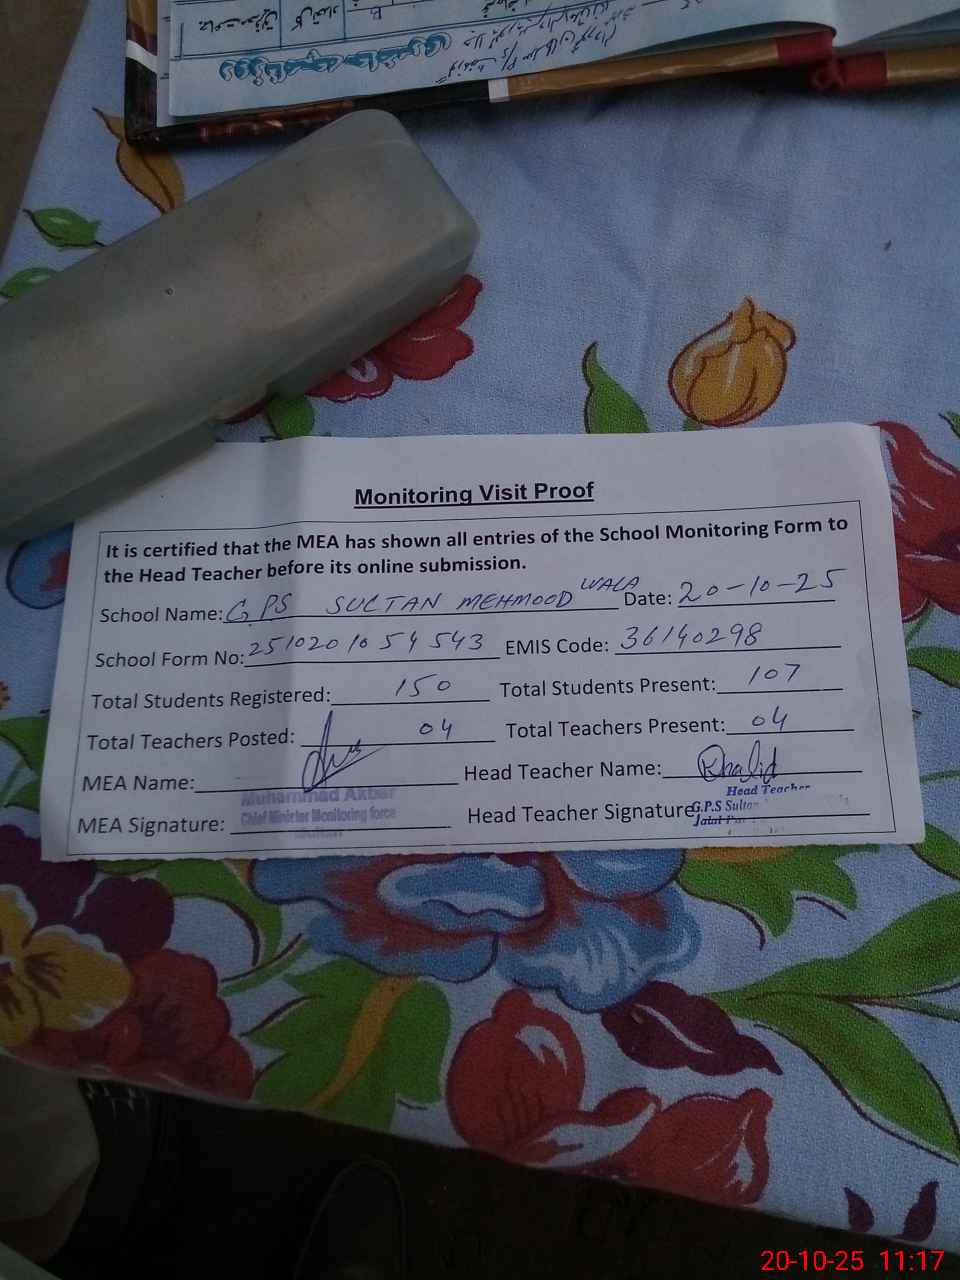 Monitoring Visit Proof
It is certified that the MEA has shown all entries of the School Monitoring Form to
the Head Teacher before its online submission.
School Name: GPS SULTAN MEHMOOD WALA Date: 20-10-25
School Form No: 25102010 54 543 EMIS Code: 36140298
Total Students Registered: 150 Total Students Present: 107
Total Teachers Posted: 04 Total Teachers Present: 04
MEA Name: Head Teacher Name: Khalid
Muhammad Akbar Head Teacher
MEA Signature: Chief Minister Monitoring force Head Teacher Signature G.P.S Sultan
20-10-25 11:17